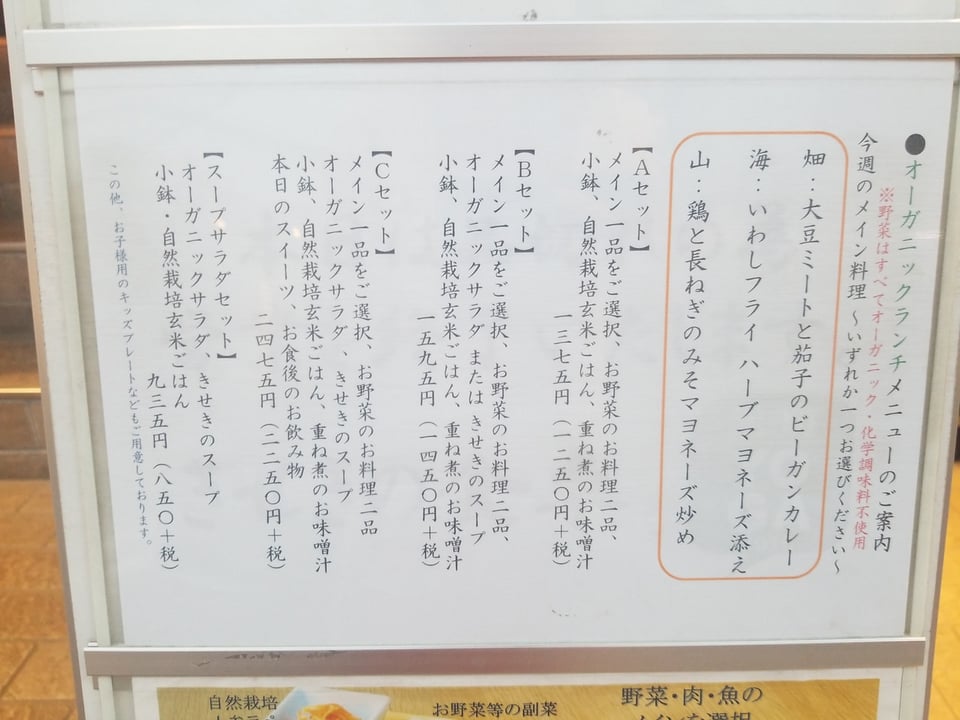 ●オーガニックランチメニューのご案内
※野菜はすべてオーガニック・化学調味料不使用
今週のメイン料理 〜いずれか一つお選びください〜
畑：大豆ミートと茄子のビーガンカレー
海：いわしフライ ハーブマヨネーズ添え
山：鶏と長ねぎのみそマヨネーズ炒め
【Aセット】
メイン一品をご選択、お野菜のお料理二品、
小鉢、自然栽培玄米ごはん、重ね煮のお味噌汁
一三七五円（一二五〇円＋税）
【Bセット】
メイン一品をご選択、お野菜のお料理二品、
オーガニックサラダ または きせきのスープ
小鉢、自然栽培玄米ごはん、重ね煮のお味噌汁
一五九五円（一四五〇円＋税）
【Cセット】
メイン一品をご選択、お野菜のお料理二品
オーガニックサラダ、きせきのスープ
小鉢、自然栽培玄米ごはん、重ね煮のお味噌汁
本日のスイーツ、お食後のお飲み物
二四七五円（二二五〇円＋税）
【スープサラダセット】
オーガニックサラダ、きせきのスープ
小鉢・自然栽培玄米ごはん
九三五円（八五〇＋税）
この他、お子様用のキッズプレートなどもご用意しております。
自然栽培
お野菜等の副菜
野菜・肉・魚の
メインを選択